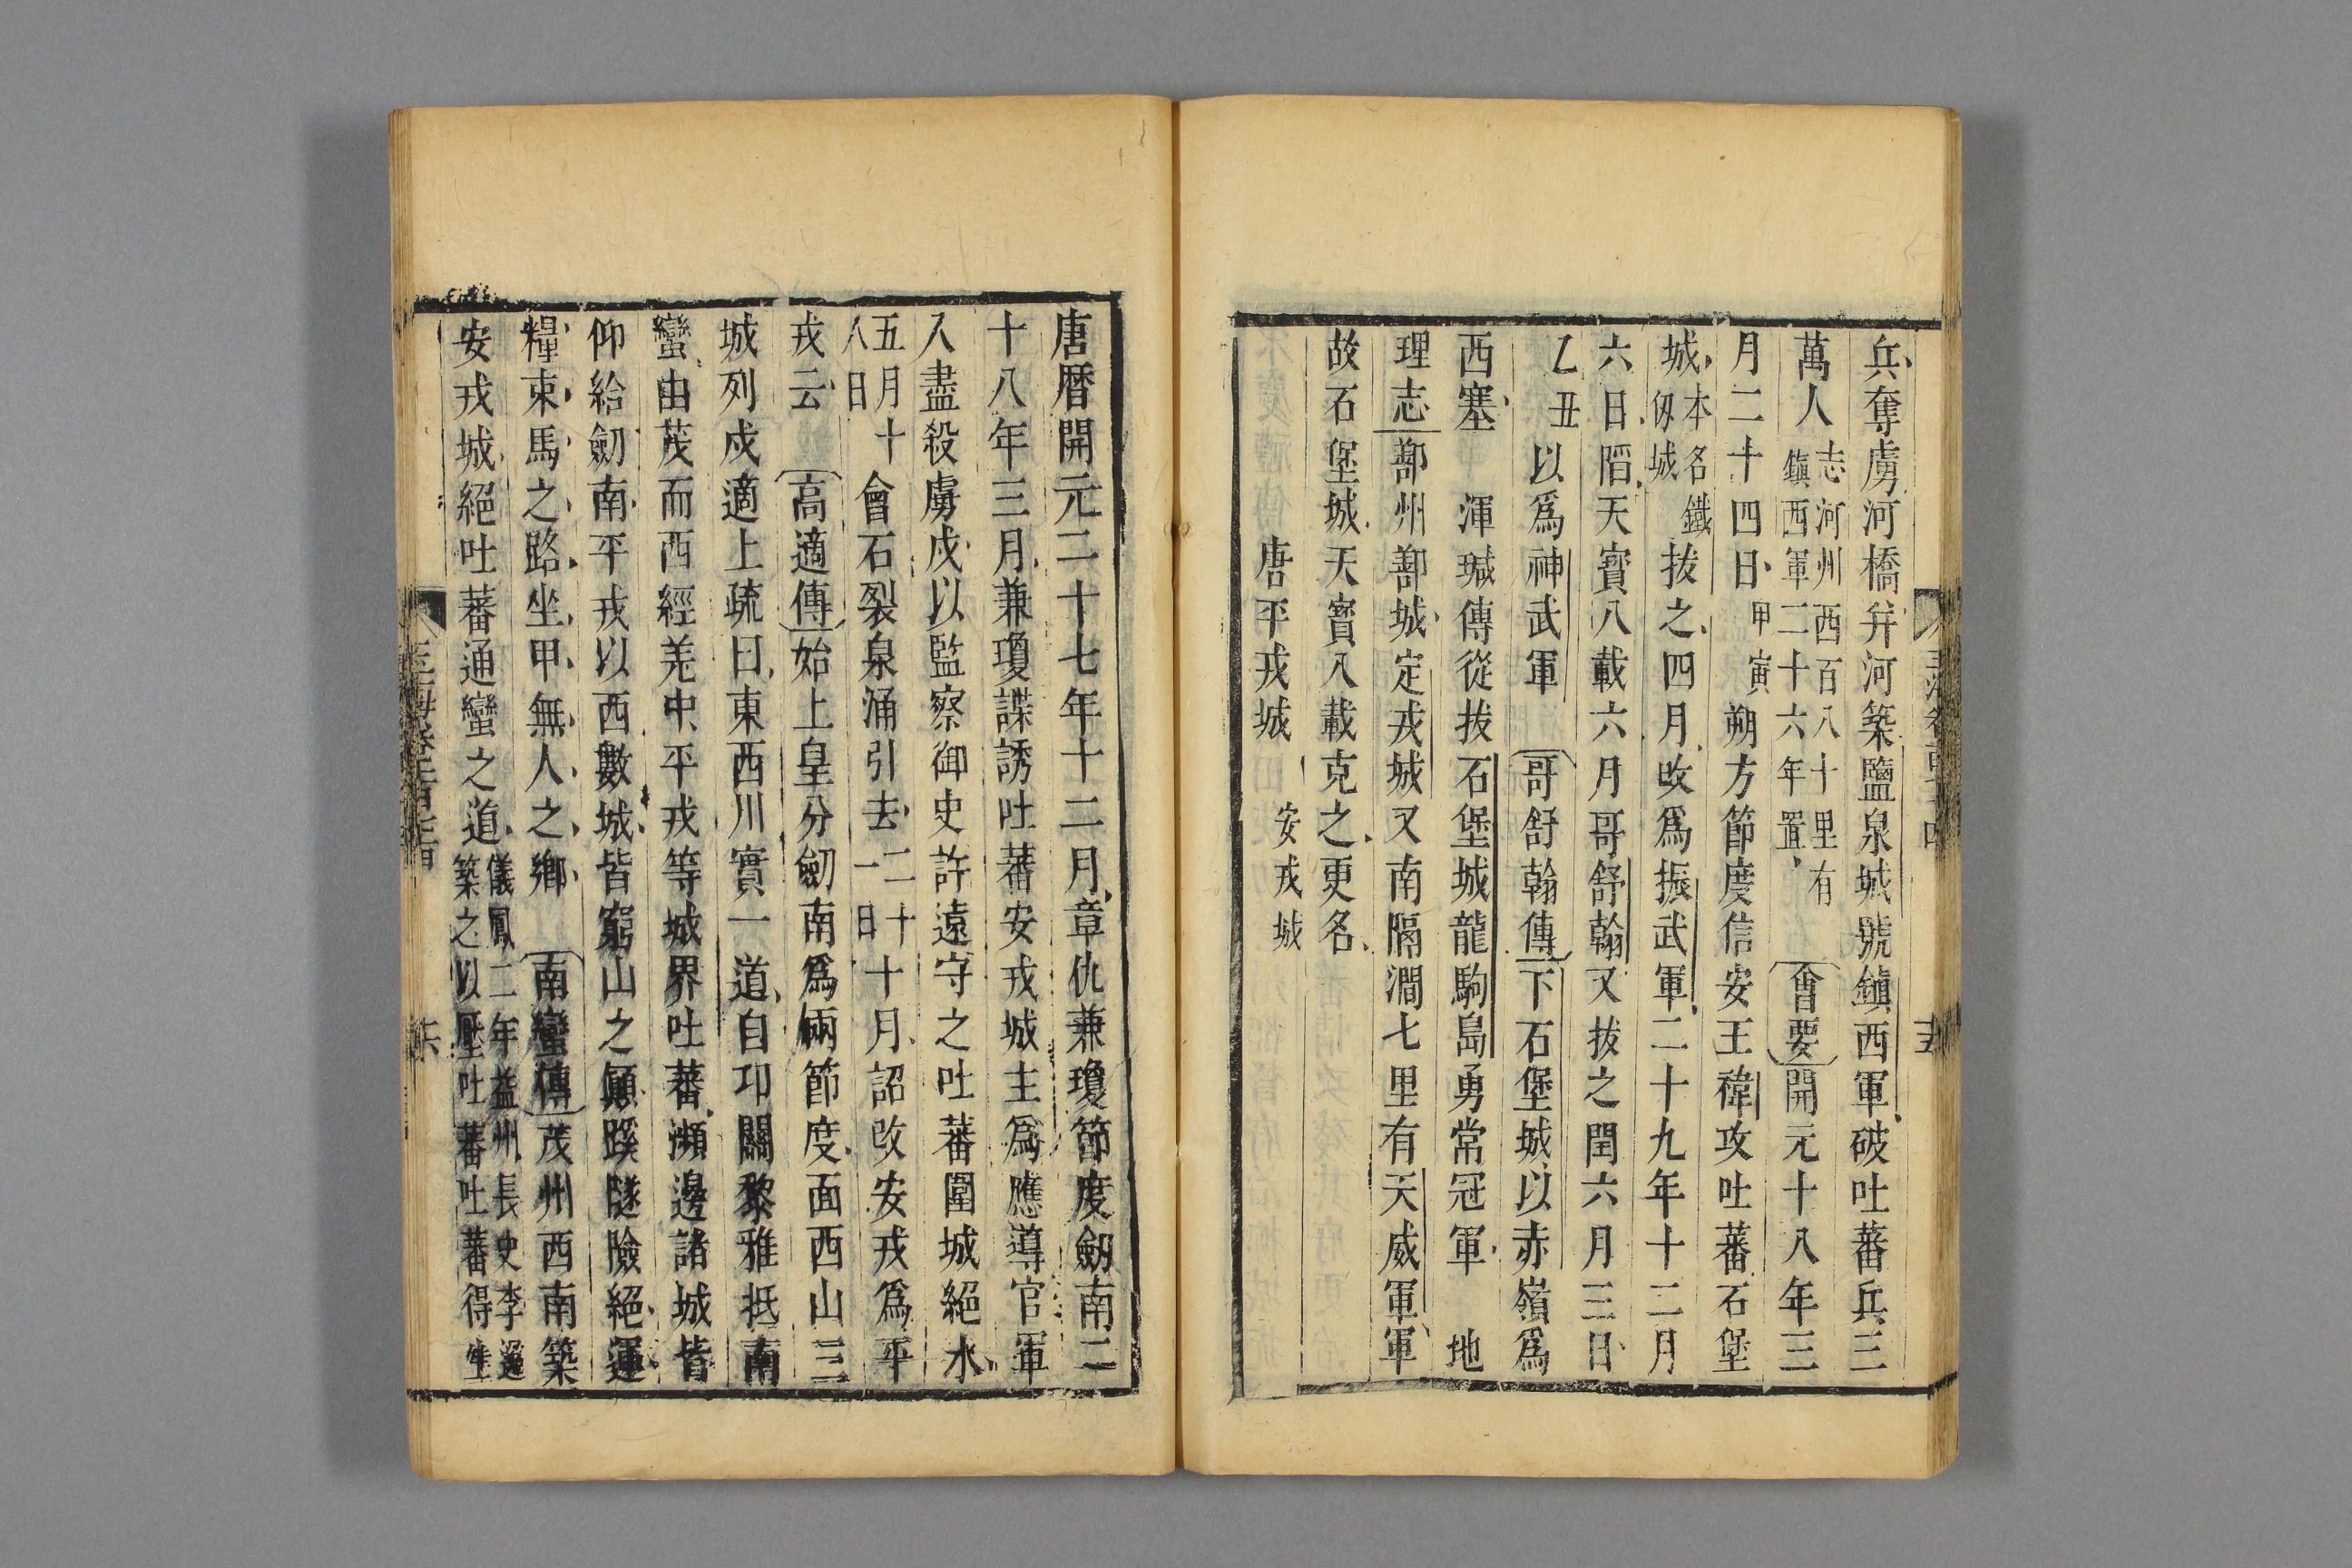 兵奪虜河橋并河築鹽泉城號鎮西軍破吐蕃兵三
萬人志河州西百八十里有鎮西軍二十六年置會要開元十八年三
月二十四日甲寅朔方節度信安王禕攻吐蕃石堡
城本名鐵仭城拔之四月改爲振武軍二十九年十二月
六日陷天寳八載六月哥舒翰又拔之閏六月三日
乙丑以爲神武軍 哥舒翰傳下石堡城以赤嶺爲
西塞 渾瑊傳從拔石堡城龍駒島勇常冠軍 地
理志鄯州鄯城定戎城又南隔澗七里有天威軍軍
故石堡城天寳八載克之更名
唐平戎城 安戎城
唐曆開元二十七年十二月章仇兼瓊節度劒南二
十八年三月兼瓊諜誘吐蕃安戎城主爲應導官軍
入盡殺虜戍以監察御史許遠守之吐蕃圍城絕水
五月十八日會石裂泉涌引去二十一日十月詔改安戎爲平
戎云 高適傳始上皇分劒南爲兩節度面西山三
城列戍適上疏曰東西川實一道自卭關黎雅抵南
蠻由茂而西經羌中平戎等城界吐蕃瀕邊諸城皆
仰給劒南平戎以西數城皆窮山之顛蹊隧險絕運
糧束馬之路坐甲無人之鄉 南蠻傳茂州西南築
安戎城絕吐蕃通蠻之道儀鳳二年益州長史李築之以壓吐蕃吐蕃得生